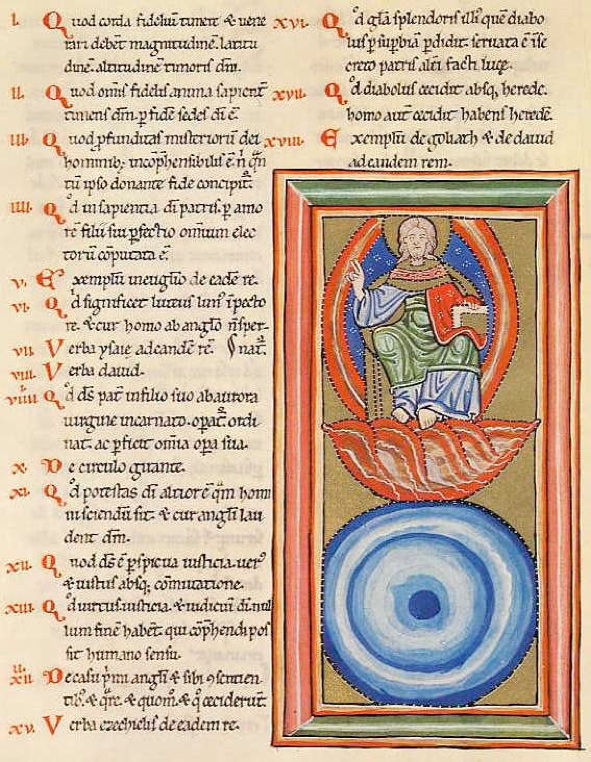 I. Quod corda fidelium timere & vene
rari debet magnitudinē. latitu
dinē. altitudinē timoris dm̄.
II. Quod omīs fidelis anima sapient̄
timens dm̄. p fidē sedes di ē.
III. Quod pfunditas misterioru dei
hominib; incōphensibilis ē n̄ qn̄
tū ipso donante fide concipit̄.
IIII. Qd in sapientia di patris. p amo
rē filii sui pfectio omnium elec
torū cōputata ē.
V. Exemplū in euglio de eadē re.
VI. Qd significet luteus lim ī pecto
re. & cur homo ab anglo n̄ sper-
VII. Verba ysaie ad eandē rē. nat̄.
VIII. Verba dauid.
VIIII. Qd ds pat̄ in filio suo ab aurora
uirgine incarnato. opat̄ ordi
nat. ac pficit omīa opa sua.
X. De circulo girante.
XI. Qd potestas di altior ē qm hom
ni sciendū sit. & cur angli lau
dent dm̄.
XII. Quod ds ē pspicua iusticia. uer
& iustus absq; cōmutatione.
XIII. Qd uirtus. iusticia. & iudiciū di nul
lum finē habet. qui cōphendi pos
sit humano sensu.
XIIII. De casu pmi angli & sibi ɔsentien
tib. & qre. & quom̄. & q̊ ceciderūt.
XV. Verba ezechielis de eadem re.
XVI. Qd gla splendoris illi quē diabo
lus p supbiā pdidit. seruata ē ī se
creto patris altī facti luci.
XVII. Qd diabolus cecidit absq; herede.
homo aut cecidit habens heredē.
XVIII. Exemplū de goliath & de dauid
ad eandem rem.